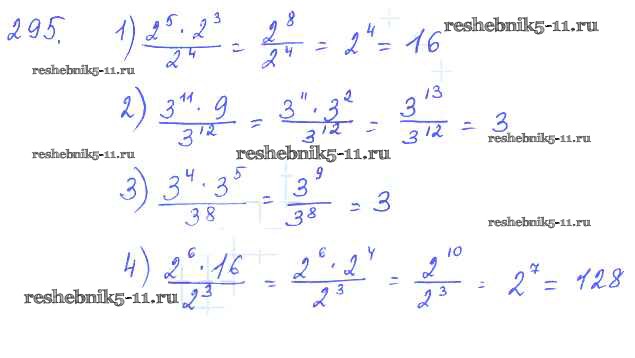 295. 1) (2⁵ · 2³)/2⁴ = 2⁸/2⁴ = 2⁴ = 16 reshebnik5-11.ru
reshebnik5-11.ru
2) (3¹¹ · 9)/3¹² = (3¹¹ · 3²)/3¹² = 3¹³/3¹² = 3
reshebnik5-11.ru
reshebnik5-11.ru reshebnik5-11.ru
3) (3⁴ · 3⁵)/3⁸ = 3⁹/3⁸ = 3
reshebnik5-11.ru
4) (2⁶ · 16)/2³ = (2⁶ · 2⁴)/2³ = 2¹⁰/2³ = 2⁷ = 128
reshebnik5-11.ru